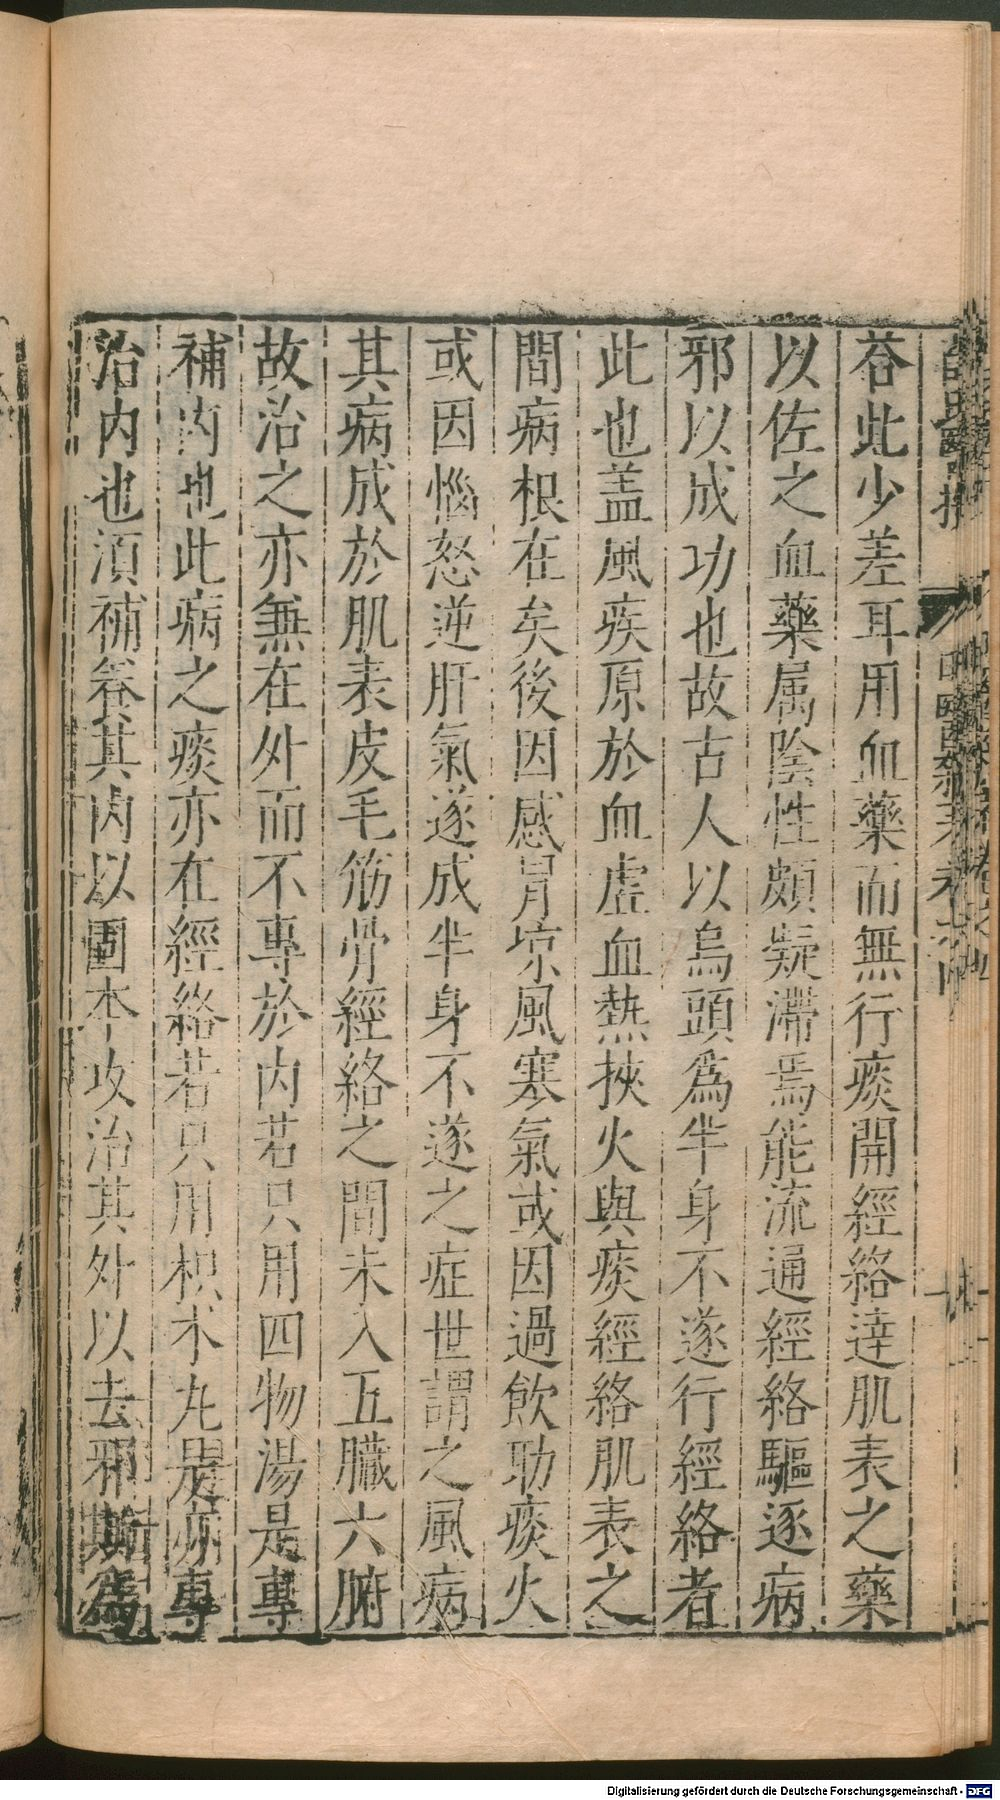 荅此少差耳用血藥而無行痰開經絡達肌表之藥
以佐之血藥属陰性頗凝滯焉能流通經絡驅逐病
邪以成功也故古人以烏頭爲半身不遂行經絡者
此也盖風疾原於血虛血熱挾火與痰經絡肌表之
間病根在矣後因感冐凉風寒氣或因過飲助痰火
或因惱怒逆肝氣遂成半身不遂之症世謂之風病
其病成於肌表皮毛筋骨經絡之間未入五臟六腑
故治之亦無在外而不專於内若只用四物湯是專
補内也此病之痰亦在經絡若只用枳术丸是亦專
治内也須補養其内以固本攻治其外以去邪斯爲
Digitalisierung gefördert durch die Deutsche Forschungsgemeinschaft - DFG